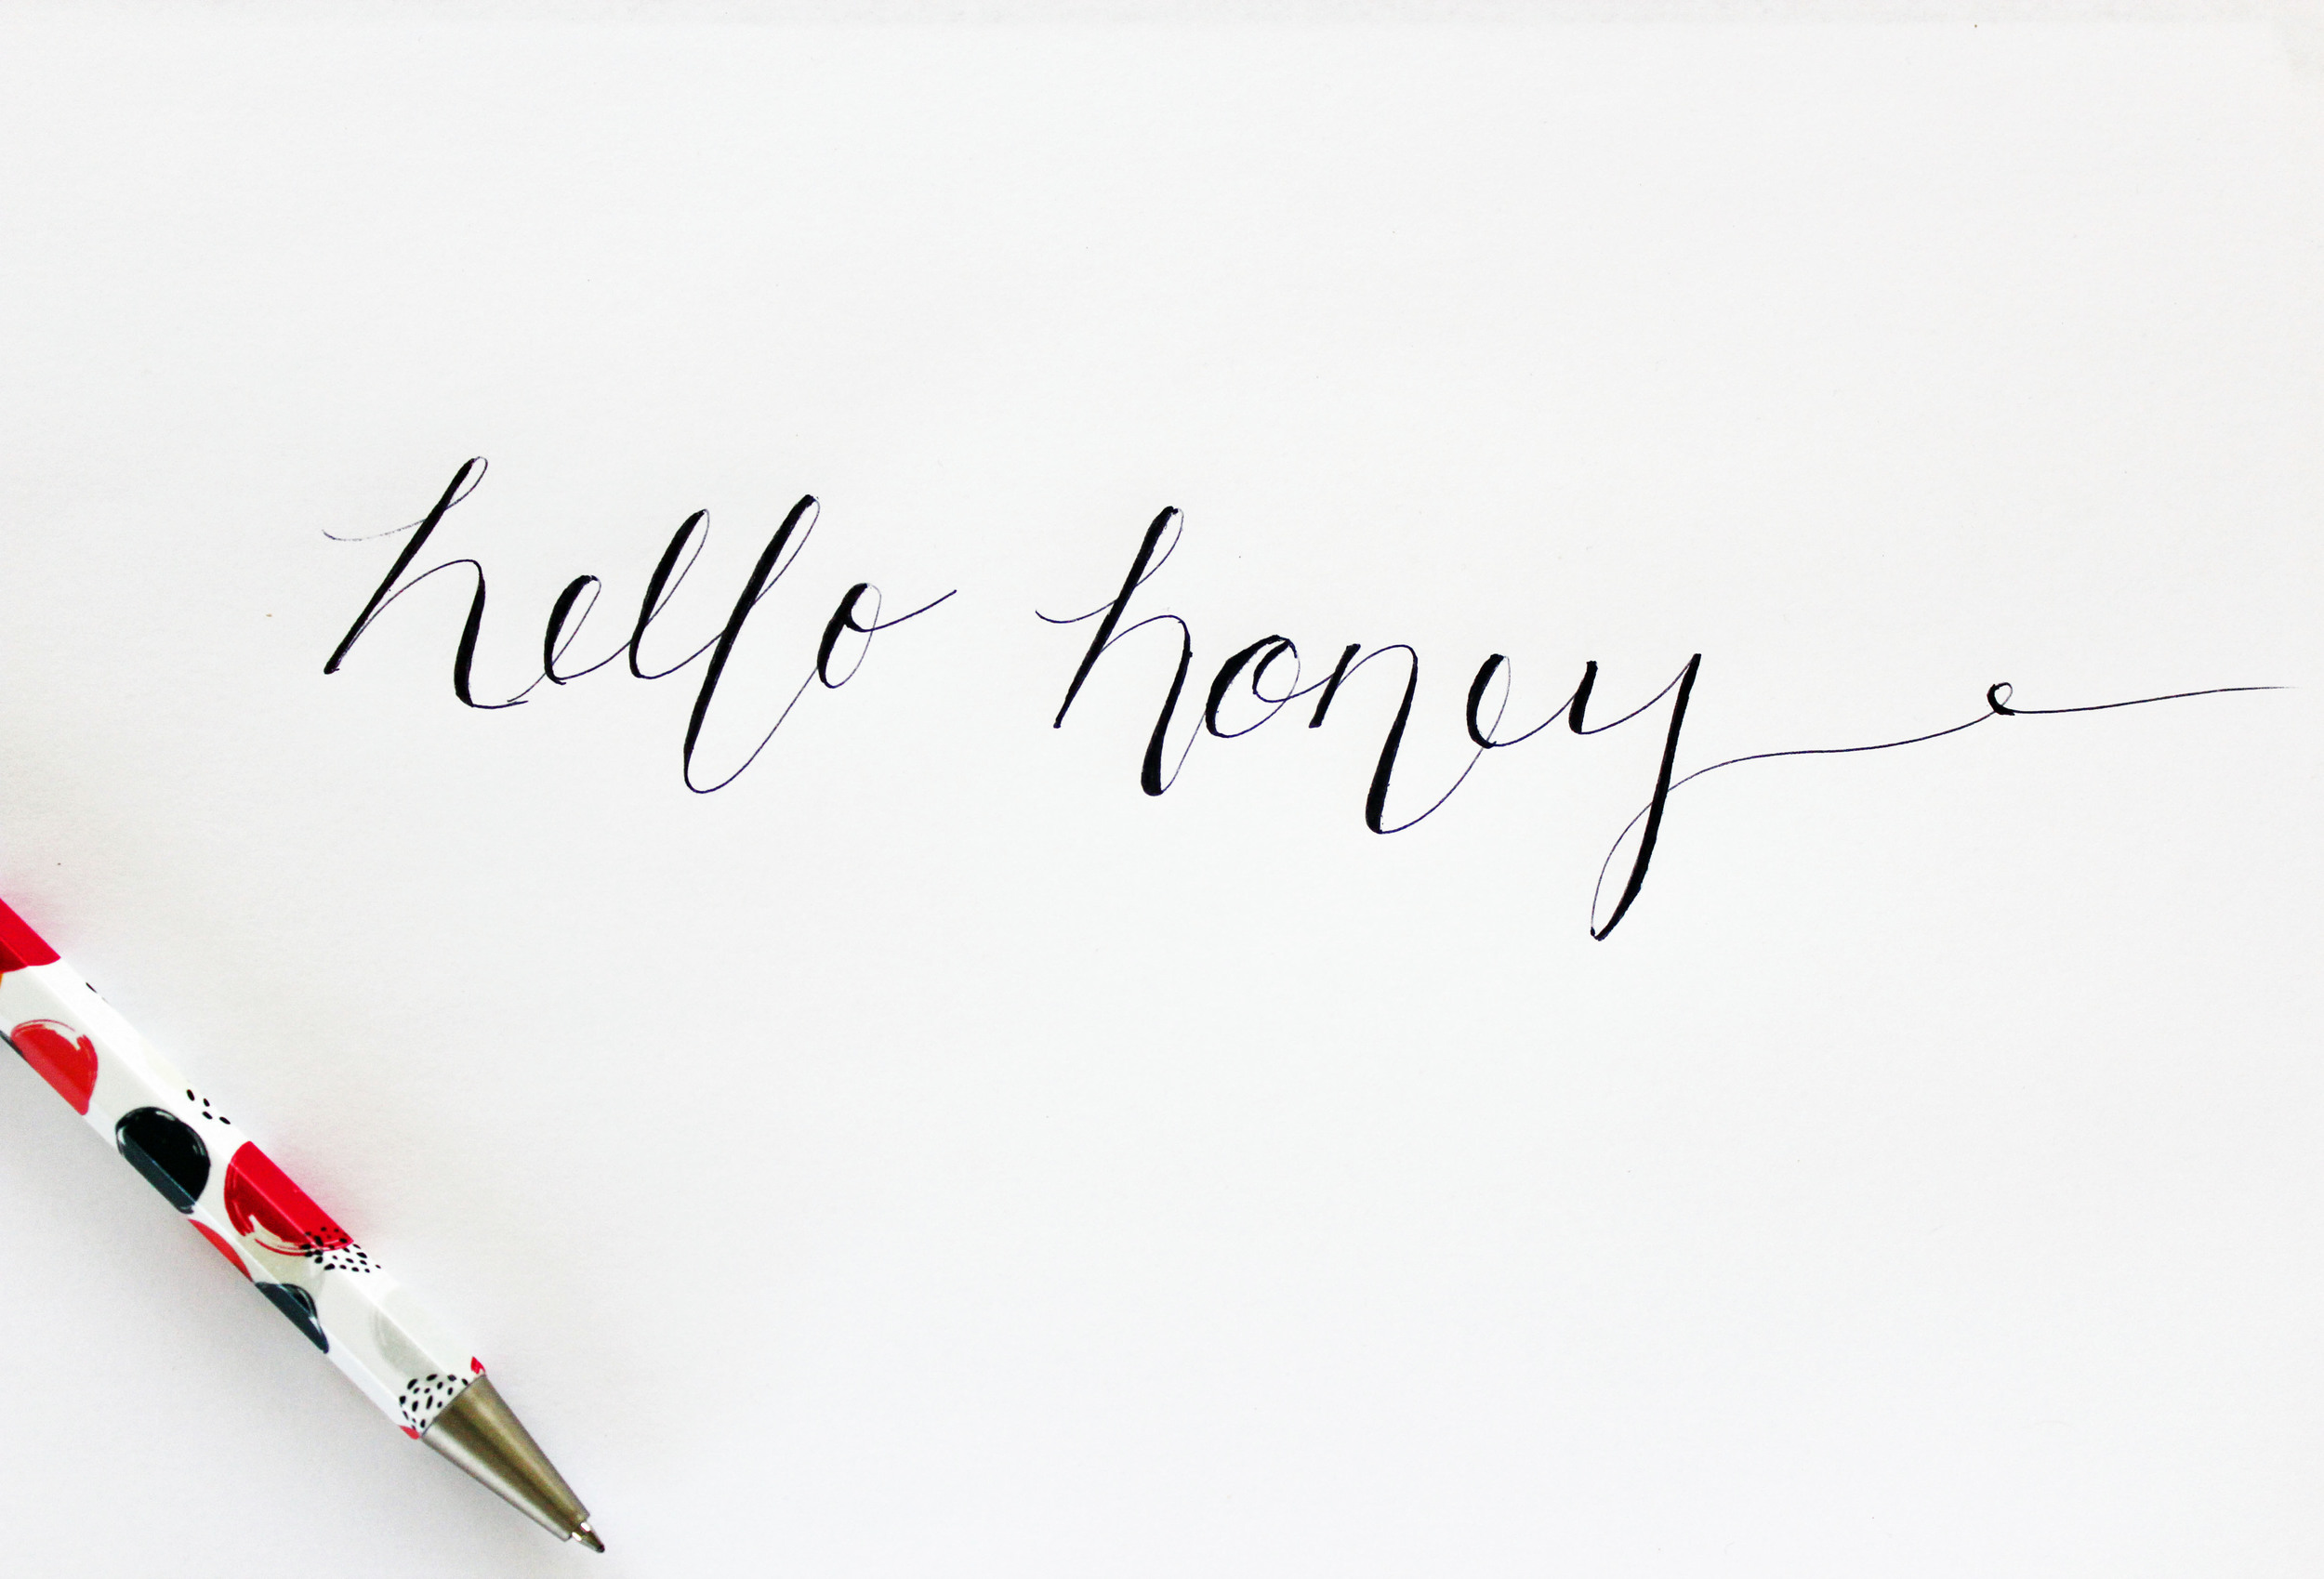 hello honey